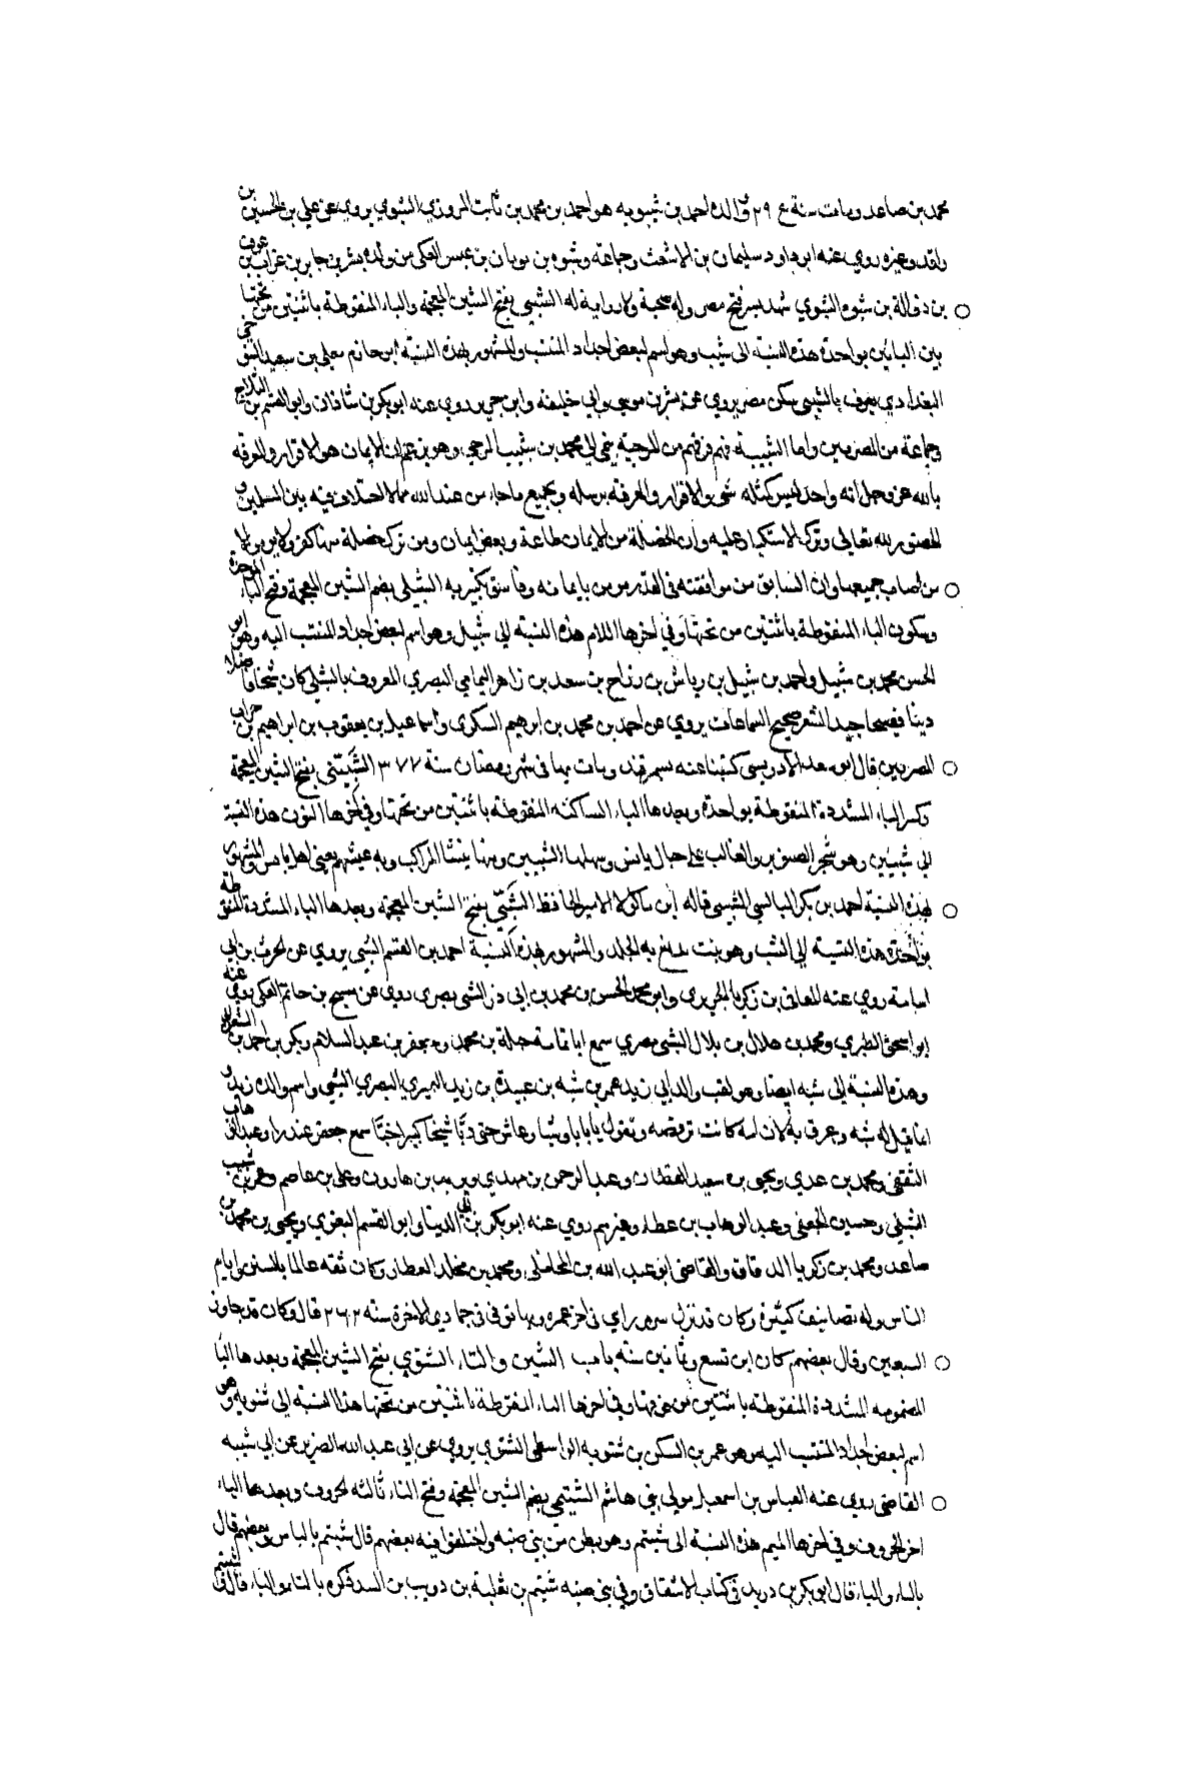 محمد بن صاعد ومات سنة ٢٩٤ ووالده احمد بن شبويه هو احمد بن محمد بن ثابت المروزي الشبوي يروي عن علي بن الحسين بن
واقد وغيره روي عنه ابو داود سليمان بن الاشعث وجماعة وشبوه بن ثوبان بن عبس العكي من ولده بشر بن جابر بن عراب بن عوف
بن ذؤالة بن شبوه الشبوي شهد فتح مصر وله صحبة ولا رواية له الشبيبي بفتح الشين المعجمة والياء المنقوطة باثنتين من تحتها
بين البائين بواحدة هذه النسبة الى شبيب وهو اسم لبعض اجداد المنتسب والمشهور بهذه النسبة ابو حازم معلى بن سعيد التنوخي
البغدادي يعرف بالشبيبي سكن مصر يروي عن بشر بن موسى وابي خليفة وابن جرير روي عنه ابو بكر بن شاذان وابو القسم بن الثلاج
وجماعة من المصريين واما الشبيبية فهم فرقة من المرجية ينتمي الى محمد بن شبيب المرجي وهو يزعم ان الايمان هو الاقرار والمعرفة
بالله عز وجل انه واحد ليس كمثله شي والاقرار والمعرفة برسله وبجميع ما جاء من عند الله مما لا اختلاف فيه بين المسلمين و
الخضوع لله تعالى وترك الاستكبار عليه وان الخصلة من الايمان طاعة وبعض ايمان ومن ترك خصلة منها كفر ولا يومن الا
من اصاب جميعها وان السابق من موافقته في القدر مومن بايمانه وفاسق بكبيره الشبيلي بضم الشين المعجمة وفتح الباء الموحدة
وسكون الياء المنقوطة باثنتين من تحتها وفي اخرها اللام هذه النسبة الى شبيل وهو اسم لبعض اجداد المنتسب اليه وهو ابو
الحسن محمد بن شبيل واحمد بن شبيل بن رياش بن رتاح بن سعد بن زاهر اليمامي البصري المعروف بالشبيلي كان شيخا فاضلا
دينا فصيحا جيد الشعر صحيح السماعات يروي عن احمد بن محمد بن ابرهيم السكرى واسماعيل بن يعقوب بن ابراهيم بن حراب
المصريين قال ابو سعد الادريسي كتبنا عنه بسمرقند ومات بها في شهر رمضان سنة ٣٧٧ الشبيني بفتح الشين المعجمة
وكسر الباء المشددة المنقوطة بواحدة وبعدها الياء الساكنه المنقوطة باثنتين من تحتها وفي اخرها النون هذه النسبة
الى شبين وهو شجر الصنوبر والغالب على جبال بانياس وسهلها الشبين ومنها ينشا المراكب وبه عيشهم يعني اهل بانياس والمشهور
بهذه النسبة احمد بن بكر البالسي الشبيني قاله ابن ماكولا الامير الحافظ الشبي بفتح الشين المعجمة وبعدها الباء المشددة المنقوطة
بواحدة هذه النسبة الى الشب وهو نبت يدبغ به الجلد والمشهور بهذه النسبة احمد بن القسم الشبي يروي عن الحرث بن ابي
اسامة روي عنه المعافى بن زكريا الجريري وابو محمد الحسن بن محمد بن ابي ذر الشبي بصرى روي عن مسبح بن حاتم العكي روي عنه
ابو اسحق الطبري ومحمد بن هلال بن بلال الشبي مصري سمع ابا قمامة جبلة بن محمد وجعفر بن عبد السلام وبكر بن احمد بن الشعراني
وهذه النسبة الى شبه ايضا وهو لقب والد ابي زيد عمر بن شبه بن عبيدة بن زيد النميري البصري الشبي واسم والده زيد و
انما قيل له شبه وعرف به لان امه كانت ترقصه وتقول يا بابا وشبا وعاش حتى دبا شيخا كبيرا خبا سمع جعفر غندرا وعبد الوهاب
الثقفي ومحمد بن عدي ويحيى بن سعيد القطان وعبد الرحمن بن مهدي ويزيد بن هارون وعلي بن عاصم وعمر بن شبيب
المسلي وحسين الجعفي وعبد الوهاب بن عطاء وغيرهم روي عنه ابو بكر بن ابي الدنيا وابو القسم البغوي ويحيى بن محمد بن
صاعد ومحمد بن زكريا الدقاق والقاضي ابو عبد الله بن المحاملي ومحمد بن مخلد العطار وكان ثقه عالما بالسير وايام
الناس وله تصانيف كثيرة وكان قد نزل سر من راى في اخر عمره وبها توفى في جمادي الاخرة سنه ٢٦٢ قال وكان قد جاوز
السبعين وقال بعضهم كان ابن تسع وثمانين سنه باب الشين والتاء الشتوي بفتح الشين المعجمة وبعدها التا
المضمومه المشددة المنقوطة باثنتين من فوقها وفي اخرها الياء المنقوطة باثنتين من تحتها هذا النسبه الى شتويه وهو
اسم لبعض اجداد المنتسب اليه وهو عمر بن السكن بن شتويه الواسطي الشتوي يروي عن ابي عبد الله الضرير عن ابي شيبه
القاضي روي عنه العباس بن اسمعيل مولى بني هاشم الشتيمي بضم الشين المعجمة وفتح التاء ثالثه الحروف وبعدها الياء
اخر الحروف وفي اخرها الميم هذه النسبة الى شتيم وهو بطن من بني ضبه واختلفوا فيه بعضهم قال شيتم بالباس وبعضهم قال
بالياء والباء قال ابو بكر بن دريد في كتاب الاشتقاق وفي بني ضبه شتيم بن ثعلبة بن دويب بن السيد ذكره بالتاء والياء قال في شتيم